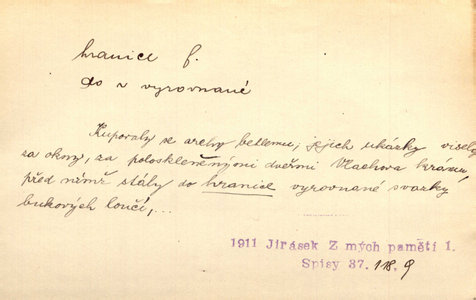 hranice f.
do h vyrovnané
Kupovaly se archy betlemu, jejich ukázky visely
za okny, za poloskleněnými dveřmi Vlachova krámu,
před nímž stály do hranice vyrovnané svazky
bukových loučí,...
1911 Jirásek Z mých pamětí 1.
Spisy 37. 118. 9